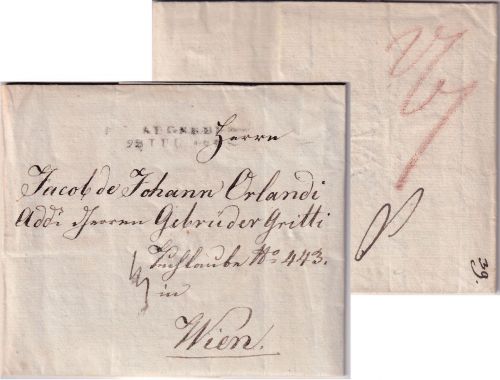 Herrn
Jacob de Johann Orlandi
Add: Herren Gebrüder Gritti
Tuchlaube No 443.
in
Wien.
39.